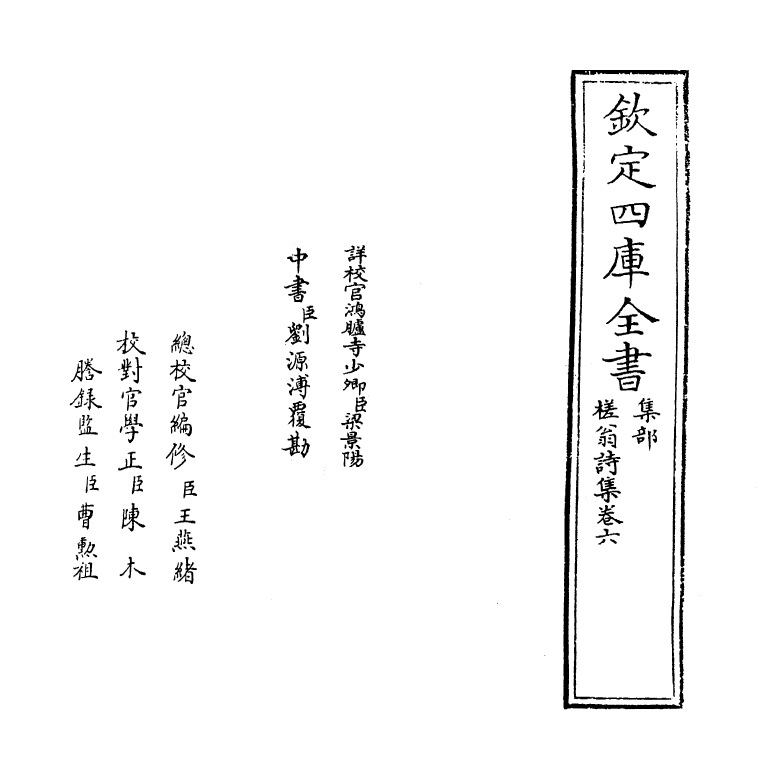 欽定四庫全書
集部
槎翁詩集卷六
詳校官鴻臚寺少卿臣梁景陽
中書臣劉源溥覆勘
總校官編修臣王燕緒
校對官學正臣陳木
謄錄監生臣曹勲祖